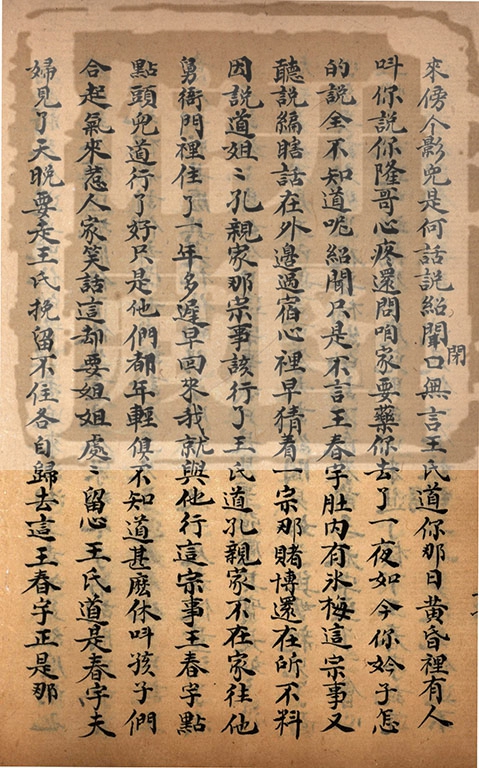 來傍个影兒是何話說紹聞口無言王氏道你那日黃昏裡有人
閉
叫你說你隆哥心疼還問咱家要藥你去了一夜如今你妗子怎
的說全不知道呢紹聞只是不言王春宇肚內有氷梅這宗事又
聽說編瞎話在外邊過宿心裡早猜着一宗那賭博還在所不料
因說道姐〻孔親家那宗事該行了王氏道孔親家不在家往他
舅衙門裡住了一年多遲早回來我就與他行這宗事王春宇點
點頭兒道行了好只是他們都年輕俱不知道甚麽休叫孩子們
合起氣來惹人家笑話這却要姐姐處〻留心王氏道是春宇夫
婦見了天晚要走王氏挽留不住各自歸去這王春宇正是那